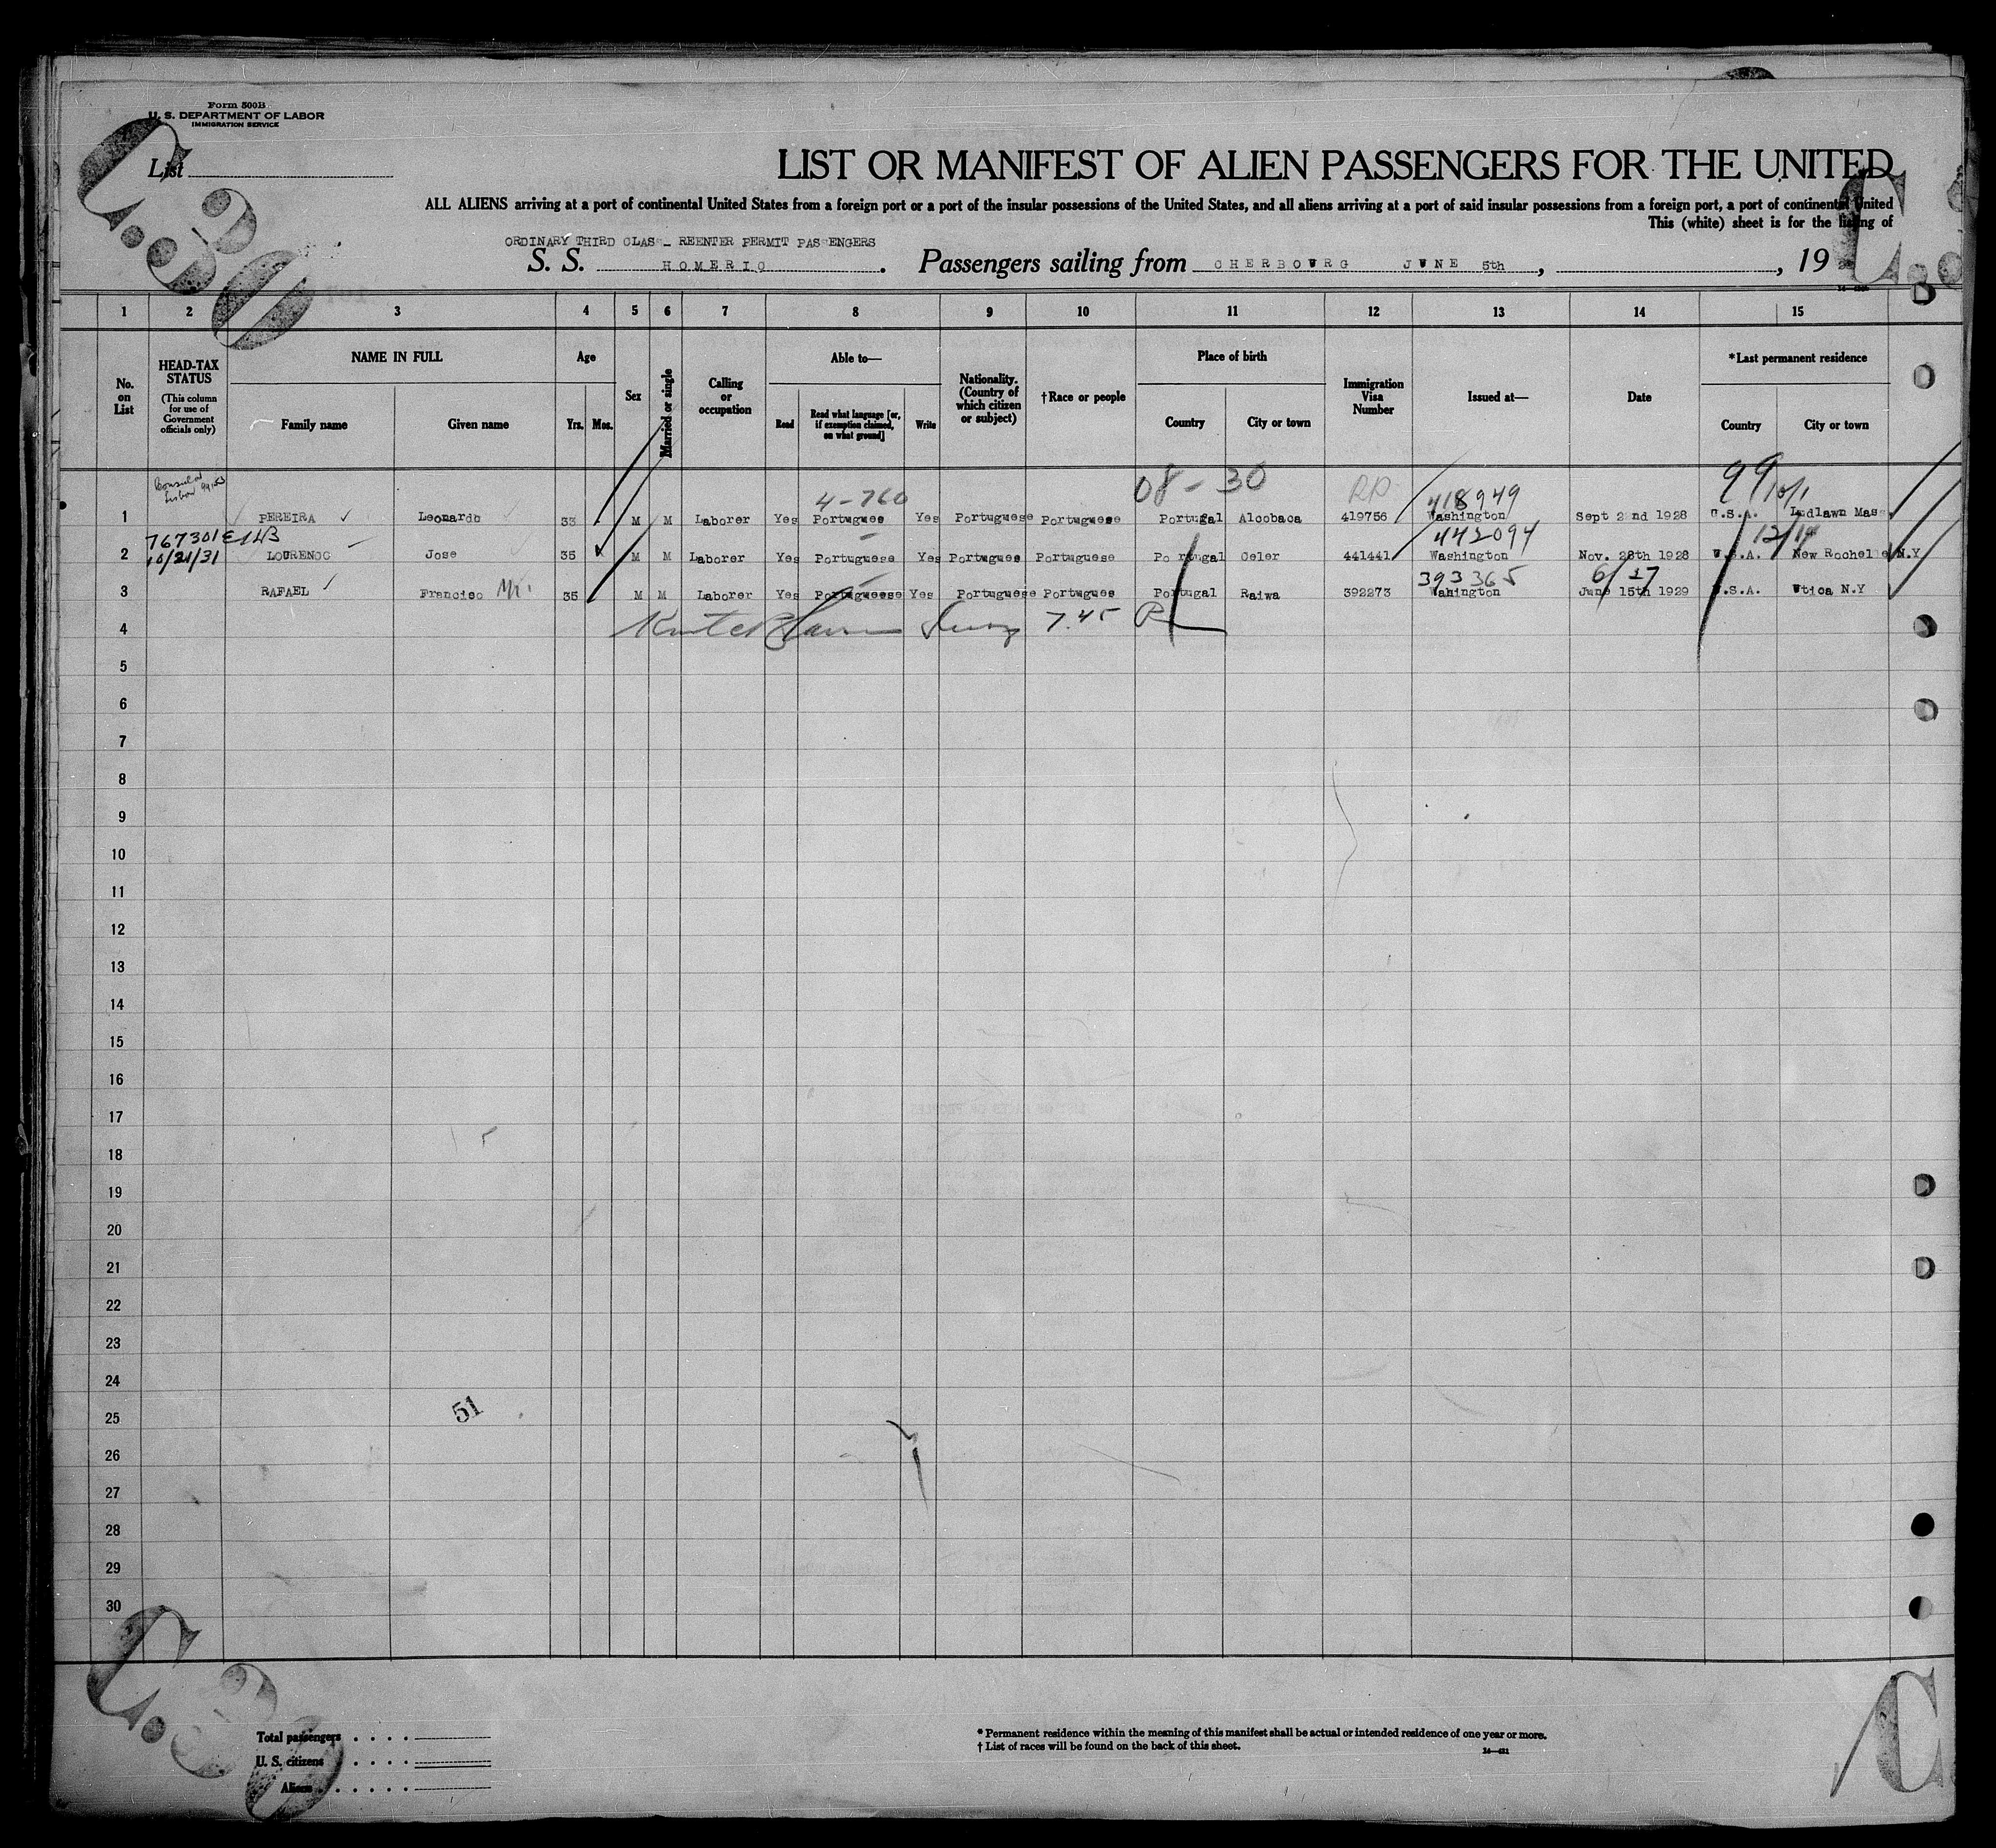 Form 500B
U. S. DEPARTMENT OF LABOR
IMMIGRATION SERVICE
List
LIST OR MANIFEST OF ALIEN PASSENGERS FOR THE UNITED
ALL ALIENS arriving at a port of continental United States from a foreign port or a port of the insular possessions of the United States, and all aliens arriving at a port of said insular possessions from a foreign port, a port of continental United
This (white) sheet is for the listing of
ORDINARY THIRD CLASS_ REENTER PERMIT PASSENGERS
S. S. HOMERIC. Passengers sailing from CHERBOURG JUNE 5th, , 19
1 2 3 4 5 6 7 8 9 10 11 12 13 14 15
No. on List
HEAD-TAX STATUS
(This column for use of Government officials only)
NAME IN FULL
Family name
Given name
Age
Yrs. Mos.
Sex
Married or single
Calling or occupation
Able to—
Read
Read what language [or, if exemption claimed, on what ground]
Write
Nationality. (Country of which citizen or subject)
†Race or people
Place of birth
Country
City or town
Immigration Visa Number
Issued at—
Date
*Last permanent residence
Country
City or town
4-760 08-30 RP 418949 99 10/1
1 PEREIRA Leonardo 33 M M Laborer Yes Portuguee Yes Portuguese Portuguese Portugal Alcobaca 419756 Washington Sept 22nd 1928 U.S.A. Ludlawn Mass
767301 10/21/31 442094 12/14
2 LOURENOC Jose 35 M M Laborer Yes Portuguese Yes Portugues Portuguese Portugal Celer 441441 Washington Nov. 28th 1928 U.S.A. New Rochelle N.Y
393365 6/27
3 RAFAEL Franciso 35 M M Laborer Yes Portugueese Yes Portuguese Portugues Portugal Raiwa 392273 Wahington June 15th 1929 U.S.A. Utica N.Y
4 7.45
5
6
7
8
9
10
11
12
13
14
15
16
17
18
19
20
21
22
23
24
25 51
26
27
28
29
30
Total passengers . . . .
U. S. citizens . . . .
Aliens . . . . . .
* Permanent residence within the meaning of this manifest shall be actual or intended residence of one year or more.
† List of races will be found on the back of this sheet.